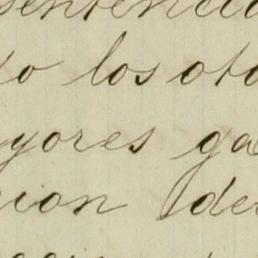 sentencia
to los oto
yores ga
cion de